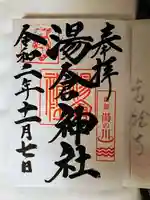 奉拝
湯倉神社
令和二年十二月七日
湯の川